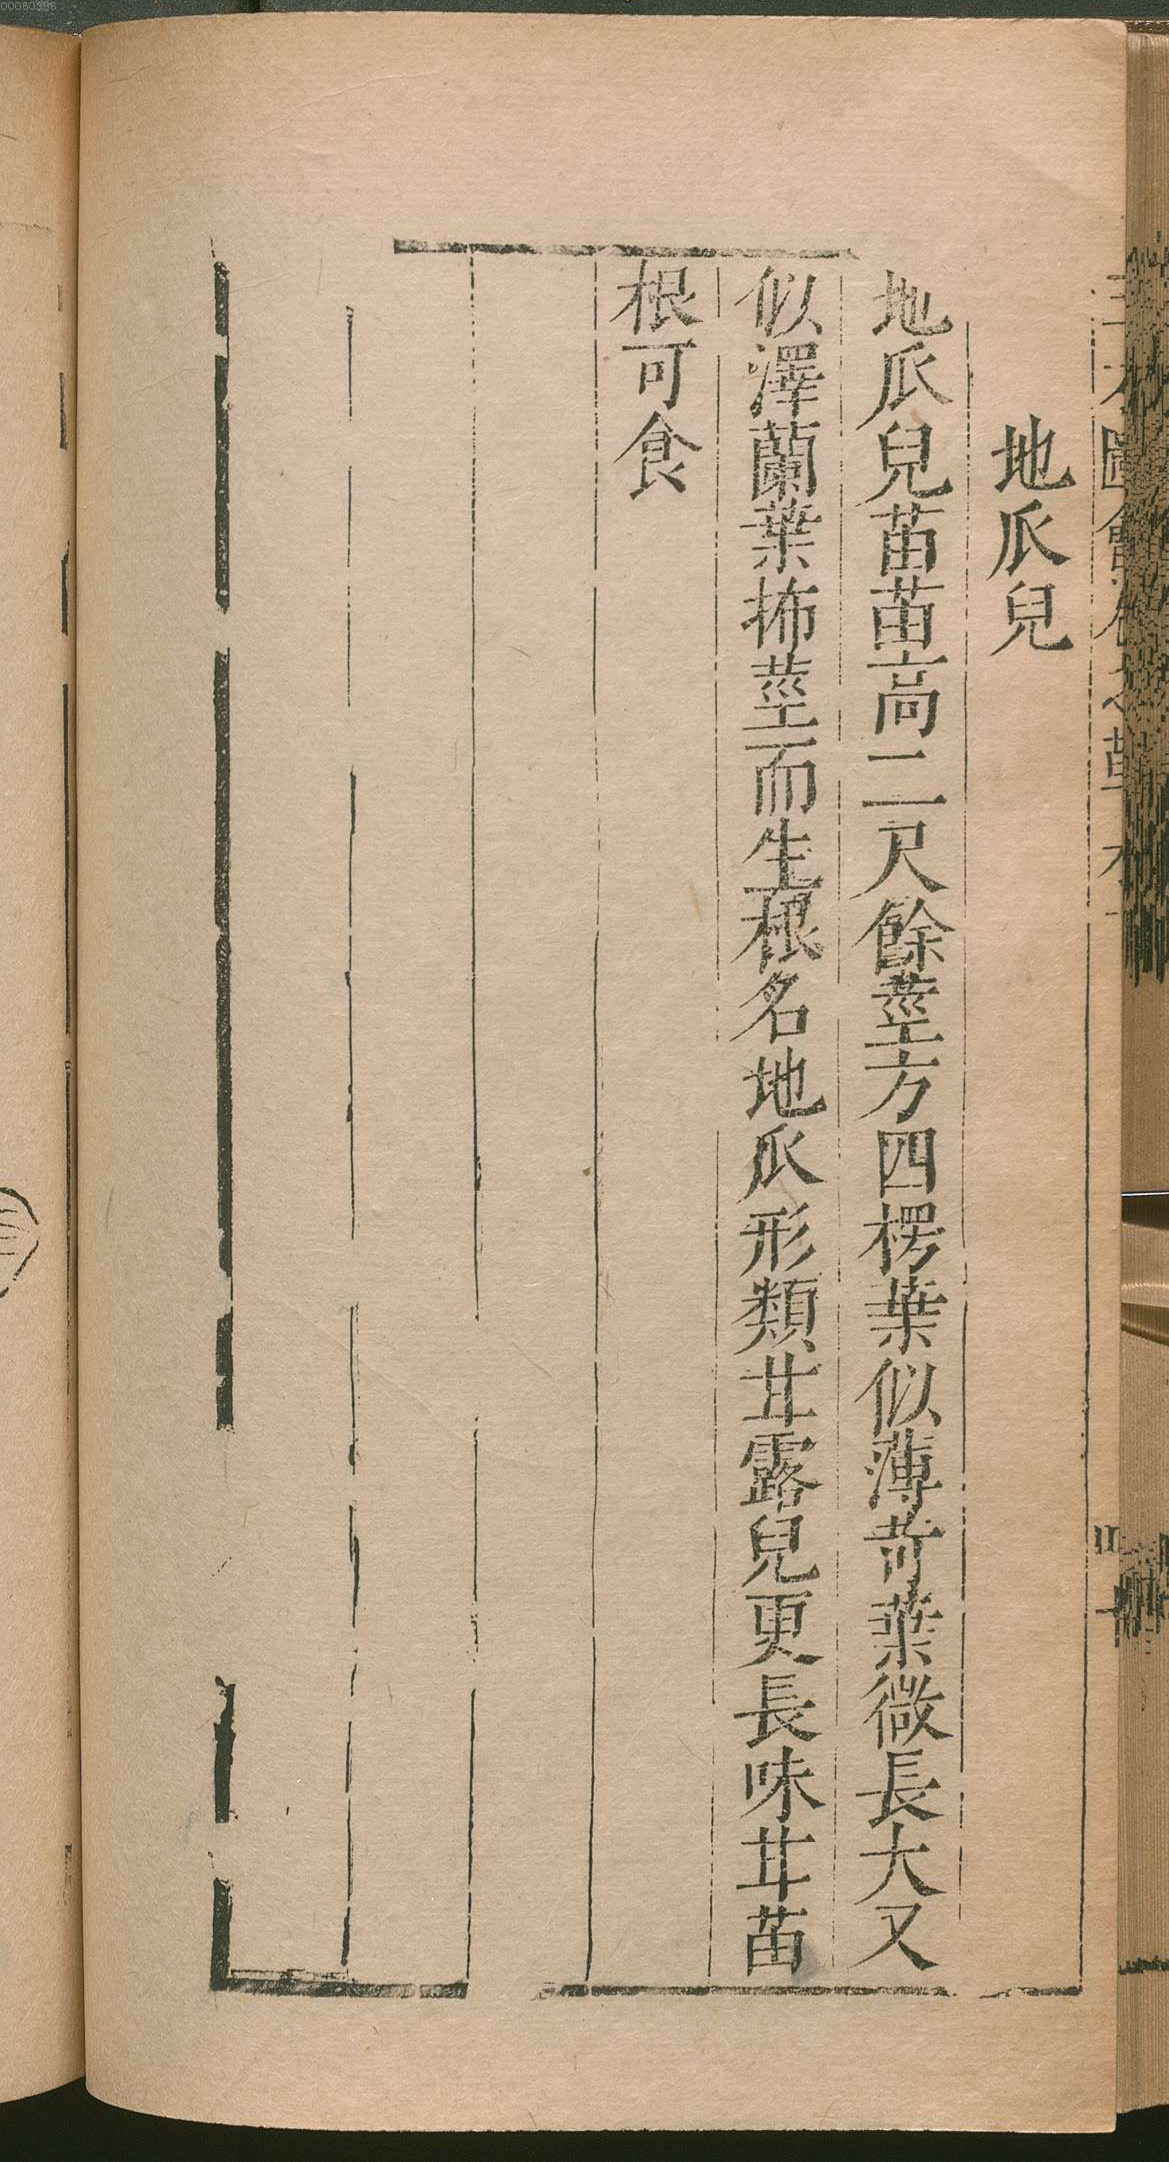 地瓜兒
地瓜兒苗苗高二尺餘莖方四楞葉似薄苛葉微長大又
似澤蘭葉抪莖而生根名地瓜形類甘露兒更長味甘苗
根可食
00080356